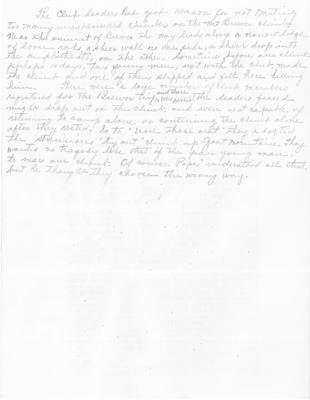 The Club leaders had good reason for not wanting
too many inexperienced climbers on the Mt Brewer climb.
Near the summit of Brewer the way leads along a narrow ledge
of loose rocks, a sheer wall on one side, a sheer drop into
the amphitheatre on the other. Sometime before our climb
perhaps a days, two young men, not with the club, made
the climb and one of them slipped and fell here killing
him. There were a large number of Club members
signed for the Brewer trip, and those the leaders feared
might drop out on the climb, and were not capable of
returning to camp alone or continuing the climb alone
after they rested. So to "
these out" they adopted
the strenuous "try out" climb up Goat Mountain. They
wanted no tragedy like that of the poor young man,
to mar our climb. Of course Papa understood all that,
but he thought they choose the wrong way.